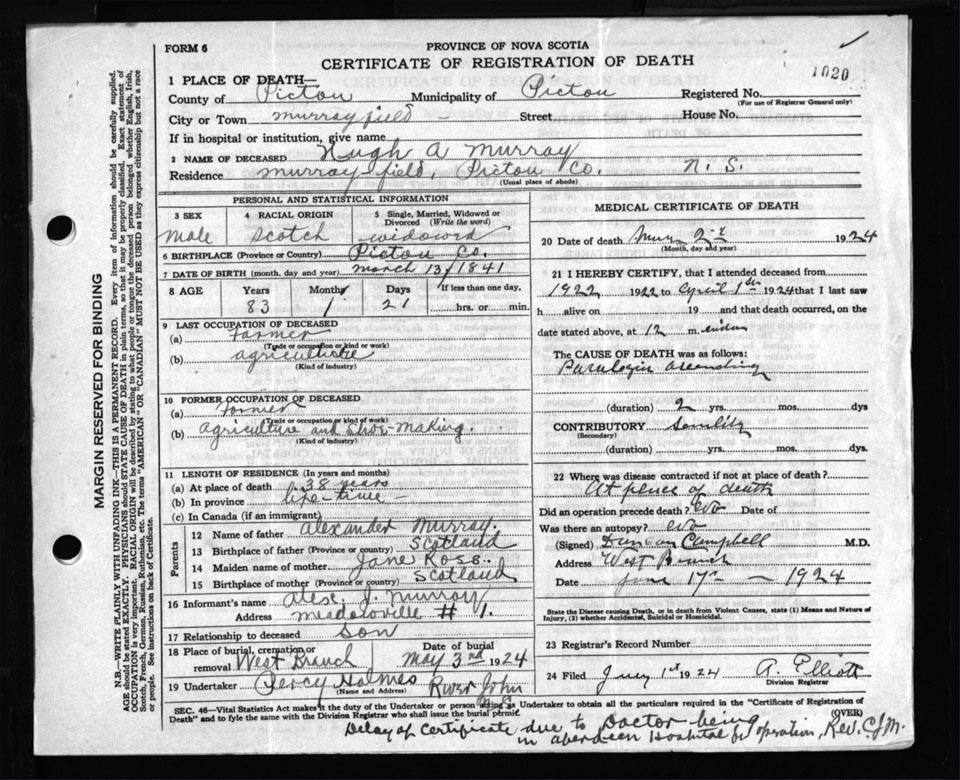 FORM 6
PROVINCE OF NOVA SCOTIA
CERTIFICATE OF REGISTRATION OF DEATH
1020
1 PLACE OF DEATH—
County of Pictou Municipality of Pictou Registered No.
(For use of Registrar General only)
City or Town Murrayfield Street House No.
If in hospital or institution, give name
2 NAME OF DECEASED Hugh A Murray
Residence Murrayfield, Pictou Co. N. S.
(Usual place of abode)
PERSONAL AND STATISTICAL INFORMATION
3 SEX 4 RACIAL ORIGIN 5 Single, Married, Widowed or Divorced (Write the word)
Male Scotch
6 BIRTHPLACE (Province or Country) Pictou Co.
7 DATE OF BIRTH (month, day and year) March 13, 1841
8 AGE Years Months Days If less than one day,
83 1 21 hrs. or min.
9 LAST OCCUPATION OF DECEASED
(a) Farmer
(Trade or occupation or kind of work)
(b)
(Kind of industry)
10 FORMER OCCUPATION OF DECEASED
(a) Farmer
(Trade or occupation or kind of work)
(b) Agriculture and Shoe-making.
(Kind of industry)
11 LENGTH OF RESIDENCE (In years and months)
(a) At place of death 38 years
(b) In province life-time —
(c) In Canada (if an immigrant)
Parents
12 Name of father Alexander Murray.
13 Birthplace of father (Province or country) Scotland
14 Maiden name of mother Jane Ross.
15 Birthplace of mother (Province or country) Scotland
16 Informant's name Alex. J. Murray
Address Meadowville # 1.
17 Relationship to deceased Son
18 Place of burial, cremation or removal West Branch Date of burial May 3rd 1924
19 Undertaker Percy Holmes River John N.S.
(Name and Address)
MEDICAL CERTIFICATE OF DEATH
20 Date of death 1924
(Month, day and year)
21 I HEREBY CERTIFY, that I attended deceased from
1922 1922 to April 1st 1924 that I last saw
h alive on 19 and that death occurred, on the
date stated above, at 12 m.
The CAUSE OF DEATH was as follows:
ascending
(duration) 2 yrs. mos. dys
CONTRIBUTORY
(Secondary)
(duration) yrs. mos. dys.
22 Where was disease contracted if not at place of death?
At place of death
Did an operation precede death? No Date of
Was there an autopsy? No
(Signed) Duncan Campbell M.D.
Address West Branch
Date June 17th — 1924
State the Disease Causing Death, or in death from Violent Causes, state (1) Means and Nature of Injury, (2) whether Accidental, Suicidal or Homicidal.
23 Registrar's Record Number
24 Filed 1st 1924 A. Elliott
Division Registrar
SEC. 46—Vital Statistics Act makes it the duty of the Undertaker or person acting as Undertaker to obtain all the particulars required in the "Certificate of Registration of
Death" and to fyle the same with the Division Registrar who shall issue the burial permit.
(OVER)
Delay of Certificate due to Doctor being
in Aberdeen Hospital for operation, Rev. C.J.M.
MARGIN RESERVED FOR BINDING
N.B.—WRITE PLAINLY WITH UNFADING INK—THIS IS A PERMANENT RECORD. Every item of information should be carefully supplied.
AGE should be stated EXACTLY. PHYSICIANS should STATE CAUSE OF DEATH in plain terms, so that it may be properly classified. Exact statement of
OCCUPATION is very important. RACIAL ORIGIN will be described by stating to what people or tongue the deceased person belonged whether English, Irish,
Scotch, French, German, Russian, Ruthenian, etc. The terms "AMERICAN" OR "CANADIAN" MUST NOT BE USED as they express citizenship but not a race
or people. See instructions on back of Certificate.